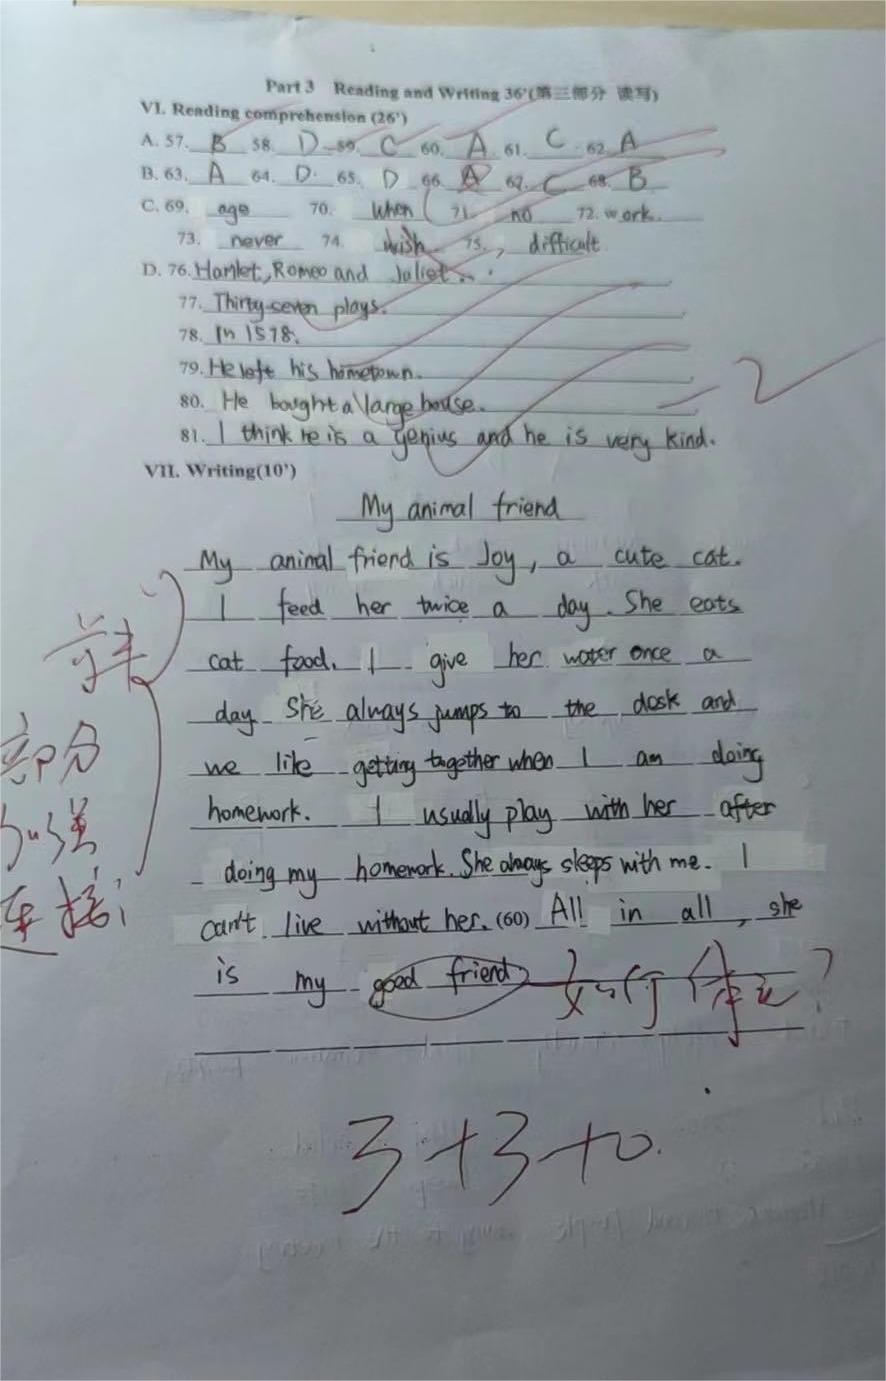 Part 3 Reading and Writing 36'(第三部分 读写)
VI. Reading comprehension (26')
A. 57. B 58. D 59. C 60. A 61. C 62. A
B. 63. A 64. D 65. D 66. A 67. C 68. B
C. 69. age 70. when 71. no 72. work.
73. never 74. wish 75. , difficult
D. 76. Hamlet, Romeo and Juliet.
77. Thirty-seven plays.
78. In 1578.
79. He left his hometown.
80. He bought a large house.
-2
81. I think he is a genius and he is very kind.
VII. Writing(10')
My animal friend
My animal friend is Joy, a cute cat.
I feed her twice a day. She eats
cat food. I give her water once a
day. She always jumps to the desk and
we like getting together when I am doing
homework. I usually play with her after
doing my homework. She always sleeps with me. I
can't live without her. (60) All in all, she
is my good friend
部分
加强
连接;
如何体现?
3+3+0.